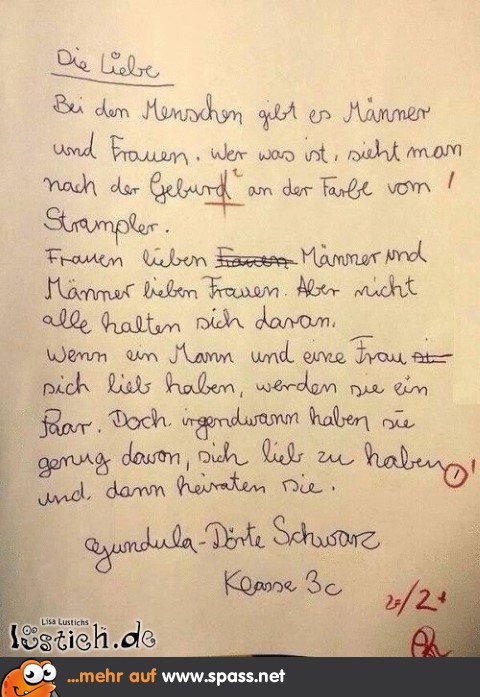 Die Liebe
Bei den Menschen gibt es Männer
und Frauen. Wer was ist, sieht man
nach der Geburd an der Farbe vom
Strampler.
Frauen lieben Frauen Männer und
Männer lieben Frauen. Aber nicht
alle halten sich daran.
Wenn ein Mann und eine Frau
sich lieb haben, werden sie ein
Paar. Doch irgendwann haben sie
genug davon, sich lieb zu haben
und dann heiraten sie.
Gundula-Dörte Schwarz
Klasse 3c
2+
Lisa Lustichs
lustich.de
...mehr auf www.spass.net